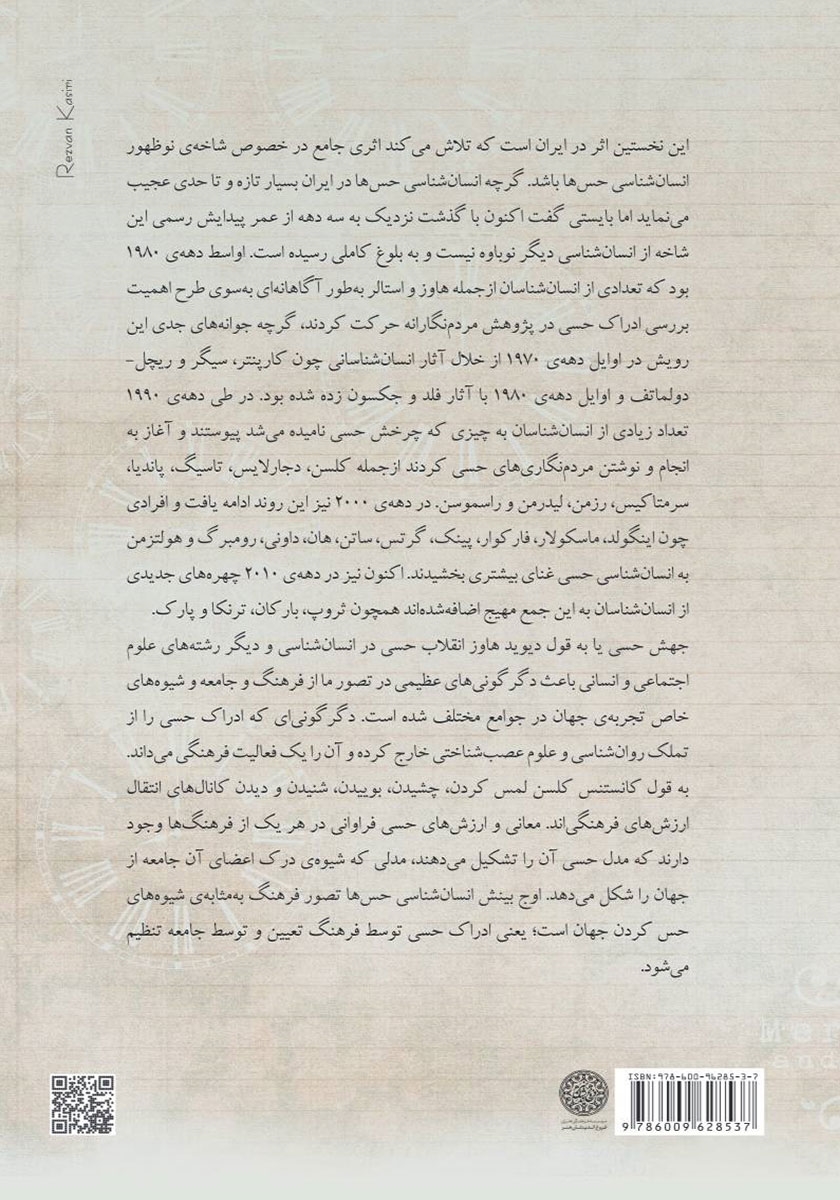 Rezvan Kasiri
این نخستین اثر در ایران است که تلاش می‌کند اثری جامع در خصوص شاخه‌ی نوظهور
انسان‌شناسی حس‌ها باشد. گرچه انسان‌شناسی حس‌ها در ایران بسیار تازه و تا حدی عجیب
می‌نماید اما بایستی گفت اکنون با گذشت نزدیک به سه دهه از عمر پیدایش رسمی این
شاخه از انسان‌شناسی دیگر نوباوه نیست و به بلوغ کاملی رسیده است. اواسط دهه‌ی ۱۹۸۰
بود که تعدادی از انسان‌شناسان ازجمله هاوز و استالر به‌طور آگاهانه‌ای به‌سوی طرح اهمیت
بررسی ادراک حسی در پژوهش مردم‌نگارانه حرکت کردند، گرچه جوانه‌های جدی این
رویش در اوایل دهه‌ی ۱۹۷۰ از خلال آثار انسان‌شناسانی چون کارپنتر، سیگر و ریچل-
دولماتف و اوایل دهه‌ی ۱۹۸۰ با آثار فلد و جکسون زده شده بود. در طی دهه‌ی ۱۹۹۰
تعداد زیادی از انسان‌شناسان به چیزی که چرخش حسی نامیده می‌شد پیوستند و آغاز به
انجام و نوشتن مردم‌نگاری‌های حسی کردند ازجمله کلسن، دجارلایس، تاسیگ، پاندیا،
سرمتاکیس، رزمن، لیدرمن و راسموسن. در دهه‌ی ۲۰۰۰ نیز این روند ادامه یافت و افرادی
چون اینگولد، ماسکولار، فارکوار، پینک، گرتس، ساتن، هان، داونی، رومبرگ و هولتزمن
به انسان‌شناسی حسی غنای بیشتری بخشیدند. اکنون نیز در دهه‌ی ۲۰۱۰ چهره‌های جدیدی
از انسان‌شناسان به این جمع مهیج اضافه‌شده‌اند همچون ثروپ، بارکان، ترنکا و پارک.
جهش حسی یا به قول دیوید هاوز انقلاب حسی در انسان‌شناسی و دیگر رشته‌های علوم
اجتماعی و انسانی باعث دگرگونی‌های عظیمی در تصور ما از فرهنگ و جامعه و شیوه‌های
خاص تجربه‌ی جهان در جوامع مختلف شده است. دگرگونی‌ای که ادراک حسی را از
تملک روان‌شناسی و علوم عصب‌شناختی خارج کرده و آن را یک فعالیت فرهنگی می‌داند.
به قول کانستنس کلسن لمس کردن، چشیدن، بوییدن، شنیدن و دیدن کانال‌های انتقال
ارزش‌های فرهنگی‌اند. معانی و ارزش‌های حسی فراوانی در هر یک از فرهنگ‌ها وجود
دارند که مدل حسی آن را تشکیل می‌دهند، مدلی که شیوه‌ی درک اعضای آن جامعه از
جهان را شکل می‌دهد. اوج بینش انسان‌شناسی حس‌ها تصور فرهنگ به‌مثابه‌ی شیوه‌های
حس کردن جهان است؛ یعنی ادراک حسی توسط فرهنگ تعیین و توسط جامعه تنظیم
می‌شود.
ISBN:978-600-96285-3-7
9 786009 628537